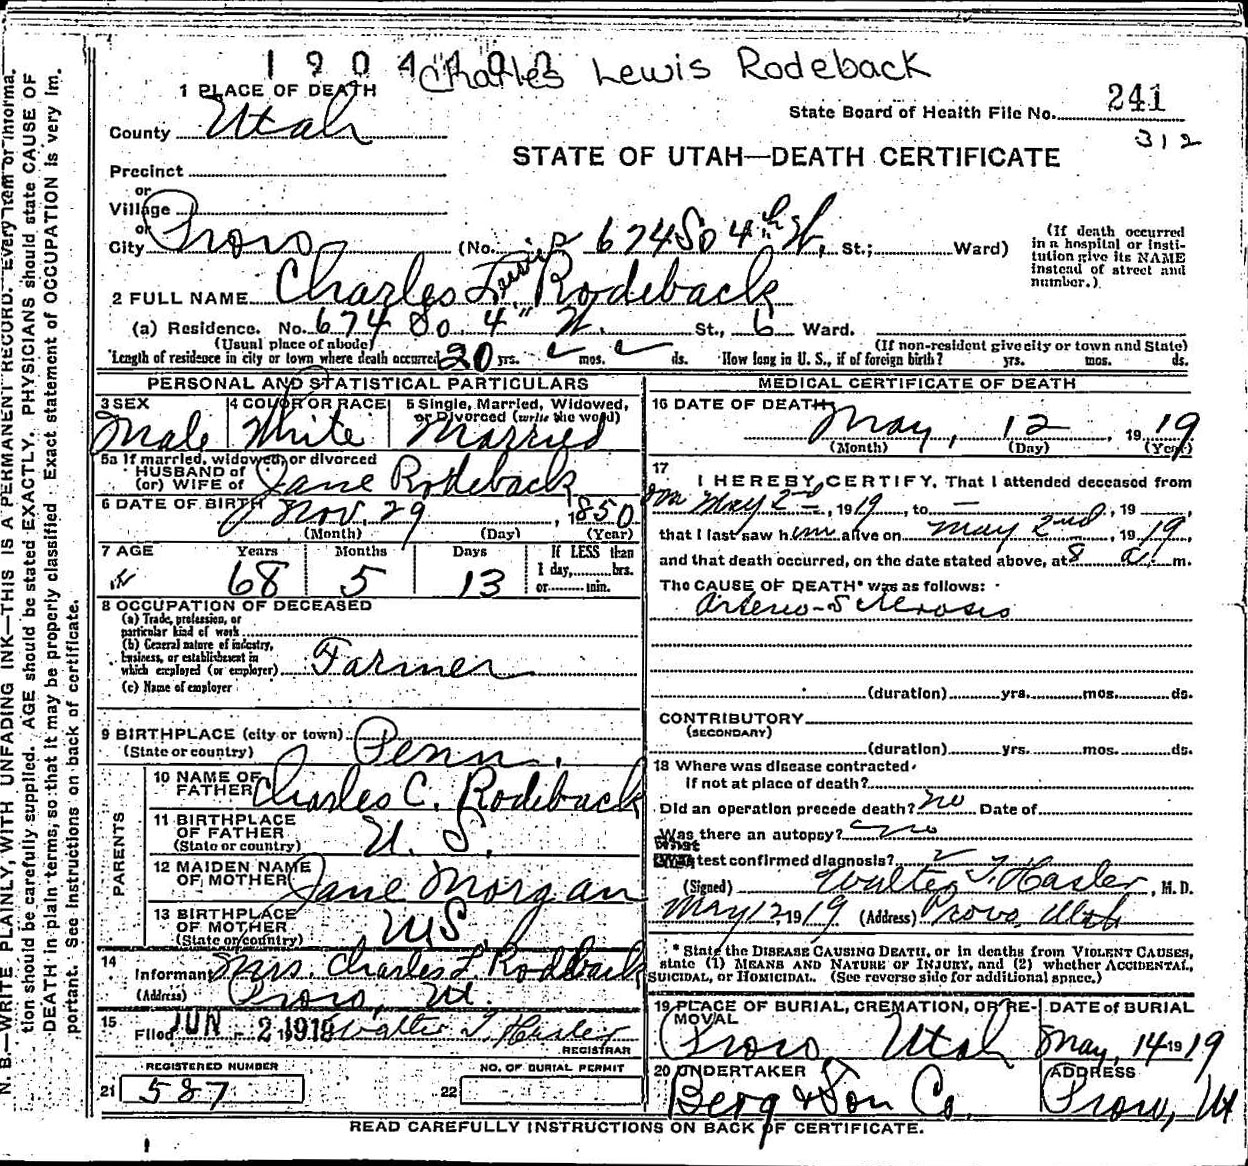 1904402
Charles Lewis Rodeback
1 PLACE OF DEATH
State Board of Health File No. 241
312
County Utah
STATE OF UTAH—DEATH CERTIFICATE
Precinct
or
Village
or
City Provo (No. 674 So 4th W. St.; Ward)
(If death occurred in a hospital or institution give its NAME instead of street and number.)
2 FULL NAME Charles Lewis Rodeback
(a) Residence. No. 674 So. 4" W. St., 6 Ward.
(Usual place of abode) (If non-resident give city or town and State)
Length of residence in city or town where death occurred 20 yrs. mos. ds. How long in U. S., if of foreign birth? yrs. mos. ds.
PERSONAL AND STATISTICAL PARTICULARS
3 SEX Male
4 COLOR OR RACE White
5 Single, Married, Widowed, or Divorced (write the word) Married
5a If married, widowed, or divorced
HUSBAND of
(or) WIFE of Jane Rodeback
6 DATE OF BIRTH Nov. 29, 1850
(Month) (Day) (Year)
7 AGE Years 68 Months 5 Days 13
If LESS than
1 day, hrs.
or min.
8 OCCUPATION OF DECEASED
(a) Trade, profession, or
particular kind of work
(b) General nature of industry,
business, or establishment in
which employed (or employer) Farmer
(c) Name of employer
9 BIRTHPLACE (city or town) Penn.
(State or country)
PARENTS
10 NAME OF FATHER Charles C. Rodeback
11 BIRTHPLACE OF FATHER U. S.
(State or country)
12 MAIDEN NAME OF MOTHER Jane Morgan
13 BIRTHPLACE OF MOTHER US
(State or country)
14 Informant Mrs. Charles L. Rodeback
(Address) Provo, Ut.
15 Filed JUN - 2 1919 Walter T. Hasler
REGISTRAR
REGISTERED NUMBER
21 587
NO. OF BURIAL PERMIT
22
MEDICAL CERTIFICATE OF DEATH
16 DATE OF DEATH May, 12, 1919
(Month) (Day) (Year)
17
I HEREBY CERTIFY, That I attended deceased from
on May 2nd, 1919, to —, 19
that I last saw him alive on May 2nd, 1919,
and that death occurred, on the date stated above, at 8 a. m.
The CAUSE OF DEATH* was as follows:
Arterio-Sclerosis
(duration) yrs. mos. ds.
CONTRIBUTORY
(SECONDARY)
(duration) yrs. mos. ds.
18 Where was disease contracted
If not at place of death?
Did an operation precede death? no Date of
Was there an autopsy? no
What test confirmed diagnosis?
(Signed) Walter T. Hasler, M. D.
May 12, 1919 (Address) Provo, Utah
* State the DISEASE CAUSING DEATH, or in deaths from VIOLENT CAUSES,
state (1) MEANS AND NATURE OF INJURY, and (2) whether ACCIDENTAL,
SUICIDAL, or HOMICIDAL. (See reverse side for additional space.)
19 PLACE OF BURIAL, CREMATION, OR REMOVAL Provo Utah
DATE of BURIAL May, 14 1919
20 UNDERTAKER Berg & Son Co.
ADDRESS Provo, Ut
READ CAREFULLY INSTRUCTIONS ON BACK OF CERTIFICATE.
N. B.—WRITE PLAINLY, WITH UNFADING INK—THIS IS A PERMANENT RECORD. Every item of informa-
tion should be carefully supplied. AGE should be stated EXACTLY. PHYSICIANS should state CAUSE OF
DEATH in plain terms, so that it may be properly classified. Exact statement of OCCUPATION is very im-
portant. See instructions on back of certificate.